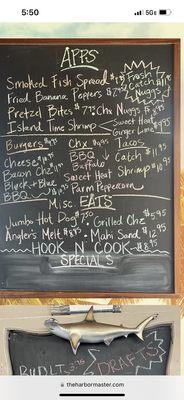 5:50
5G
APPS
Smoked Fish Spread
Fresh Catch Nuggs
Fried Banana Peppers $7.95
Pretzel Bites $7.75 Chx Nuggs
Island Time Shrimp
Sweet Heat
Ginger Lime
Burgers
Chx
Tacos
Cheese
BBQ
Catch $11.95
Bacon Chz
Buffalo
Shrimp
Black + Blue
Sweet Heat
BBQ
Parm Peppercorn
Misc. EATS
Jumbo Hot Dog $7.50 • Grilled Chz $5.95
Angler's Melt • Mahi Sand
HOOK N' COOK
SPECIALS
DRAFTS
theharbormaster.com